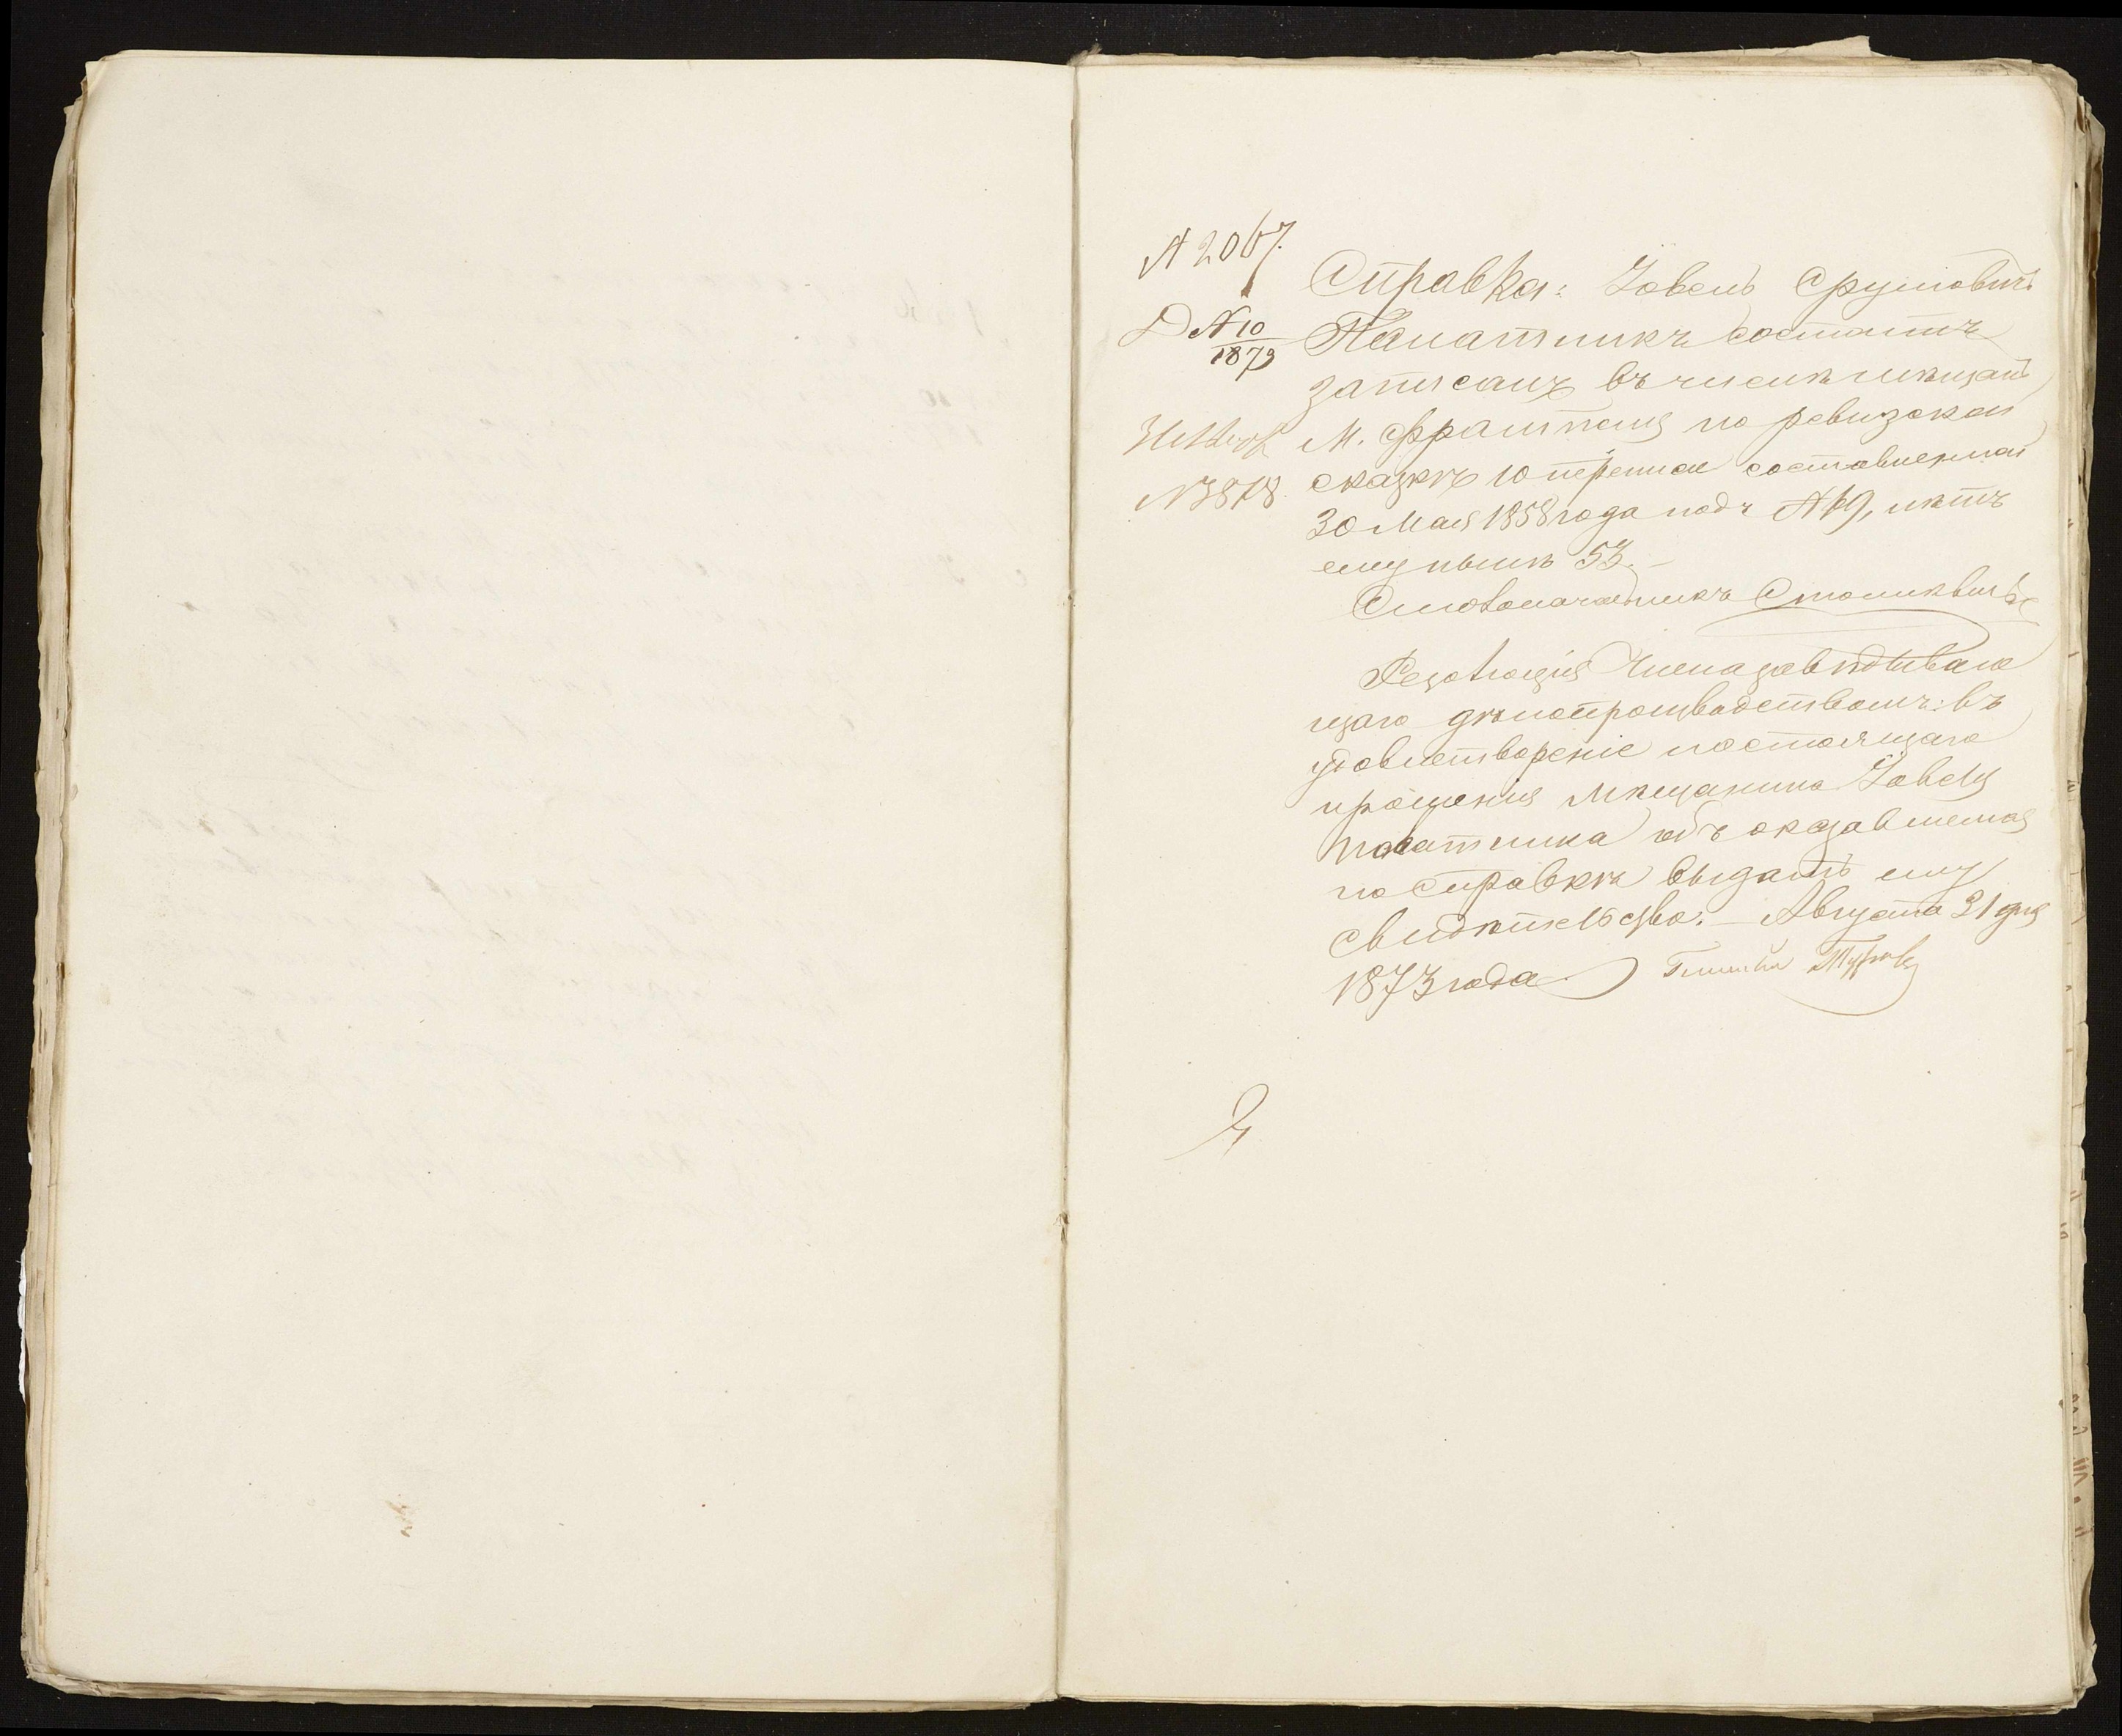 № 2067.
Д № 10
1873
№ 3878.
Справка: Іовель Срулiовичъ
Палатникъ состоитъ
записанъ въ числѣ мѣщанъ
М. Фрамполя по ревизской
сказкѣ 10 переписи составленной
30 Мая 1858 года подъ № 69, лѣтъ
ему нынѣ 53.—
Столоначальникъ
Резолюція Члена завѣдываю
щаго дѣлопроизводствомъ: въ
удовлетвореніе настоящаго
прошенія мѣщанина Іовеля
Палатника объ оказавшемся
по справкѣ выдать ему
свидѣтельство.— Августа 31 дня
1873 года